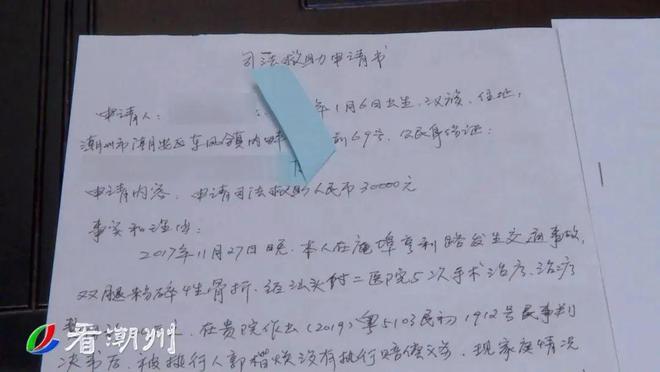 司法救助申请书
申请人: 年1月6日出生,汉族,住址:
潮州市潮安区东凤镇内畔 69号,公民身份证:
申请内容:申请司法救助人民币30000元
事实和理由:
2017年11月27日晚,本人在庵埠亨利路发生交通事故,
双腿粉碎性骨折,经汕头附二医院5次手术治疗,治疗
在贵院作出(2019)粤5103民初1912号民事判
决书后,被执行人郭楷 没有执行赔偿义务,现家庭情况
看潮州